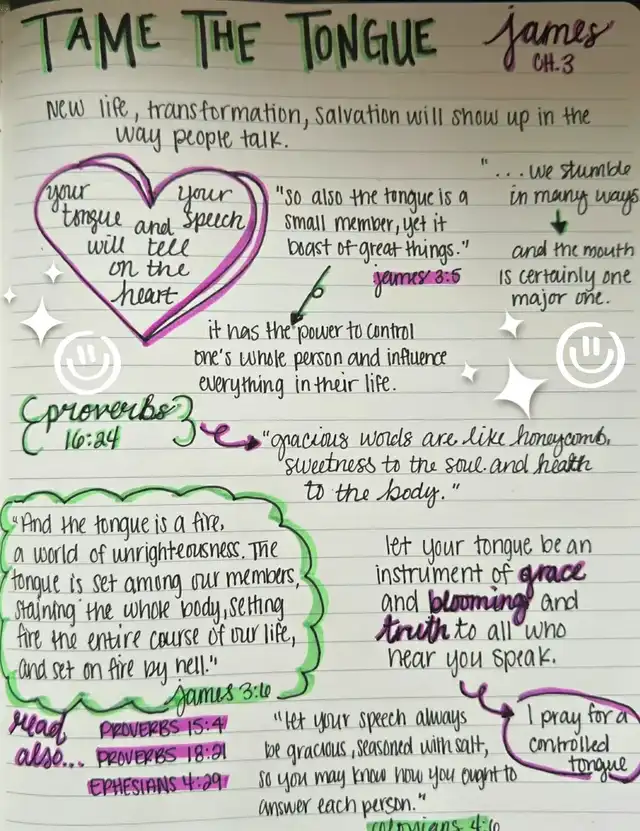 TAME THE TONGUE
james
CH.3
New life, transformation, salvation will show up in the
way people talk.
your your
tongue and speech
will tell
on the
heart
"so also the tongue is a
small member, yet it
boast of great things."
james 3:5
"...we stumble
in many ways
and the mouth
is certainly one
major one.
it has the power to control
one's whole person and influence
everything in their life.
proverbs
16:24
"gracious words are like honeycomb,
sweetness to the soul and health
to the body."
"And the tongue is a fire,
a world of unrighteousness. The
tongue is set among our members,
staining the whole body, setting
fire the entire course of our life,
and set on fire by hell."
james 3:6
let your tongue be an
instrument of grace
and blooming and
truth to all who
hear you speak.
I pray for a
controlled
tongue
read
also...
PROVERBS 15:4
PROVERBS 18:21
EPHESIANS 4:29
"let your speech always
be gracious, seasoned with salt,
so you may know how you ought to
answer each person."
colossians 4:6